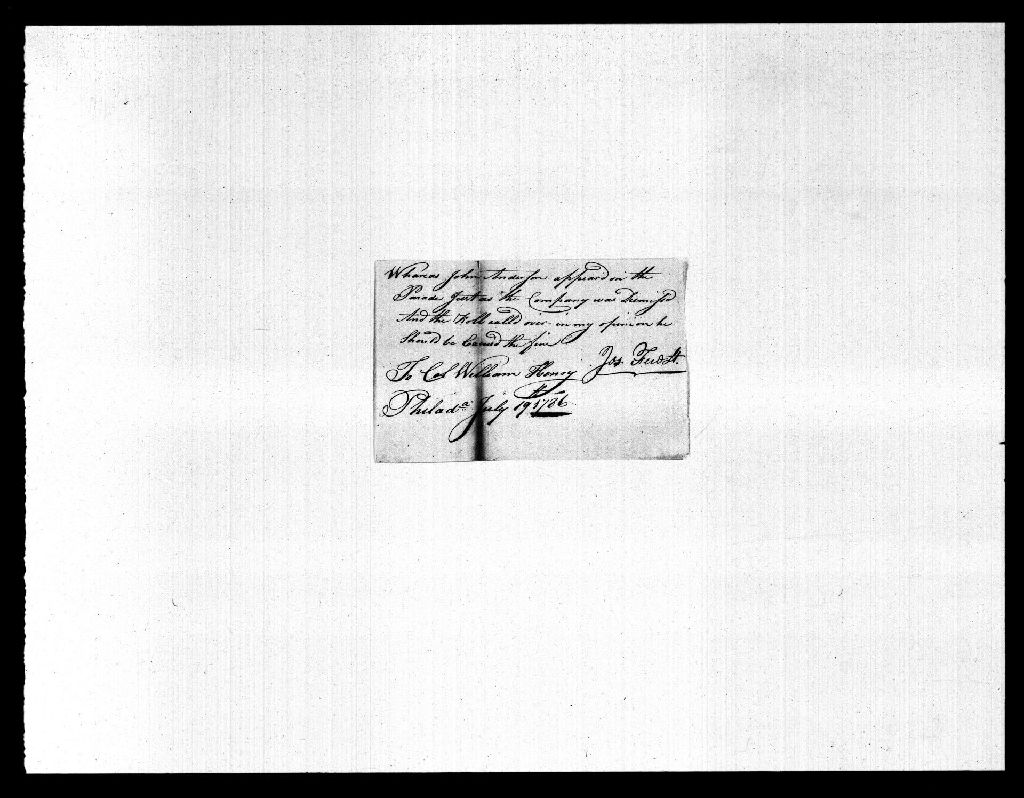 Whareas John Anderson appeard on the
Parade Just as the Company was Dismist
And the Roll calld over in my opinion he
Should be the fine
Jos.
To Col William Henry
Philada. July 19th 1786